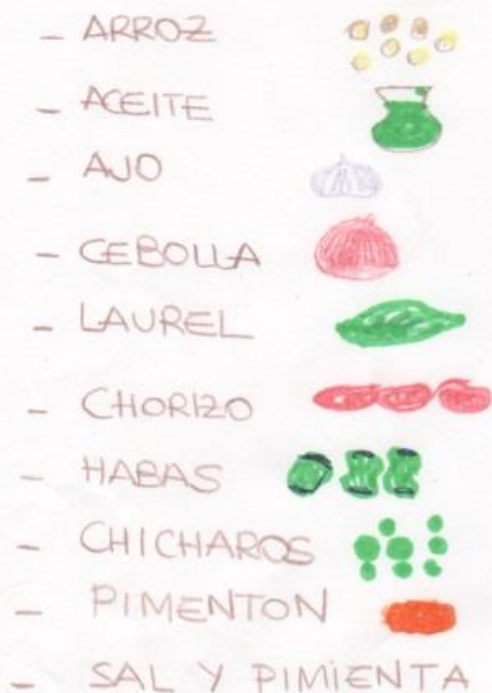 - ARROZ
- ACEITE
- AJO
- CEBOLLA
- LAUREL
- CHORIZO
- HABAS
- CHICHAROS
- PIMENTON
- SAL Y PIMIENTA